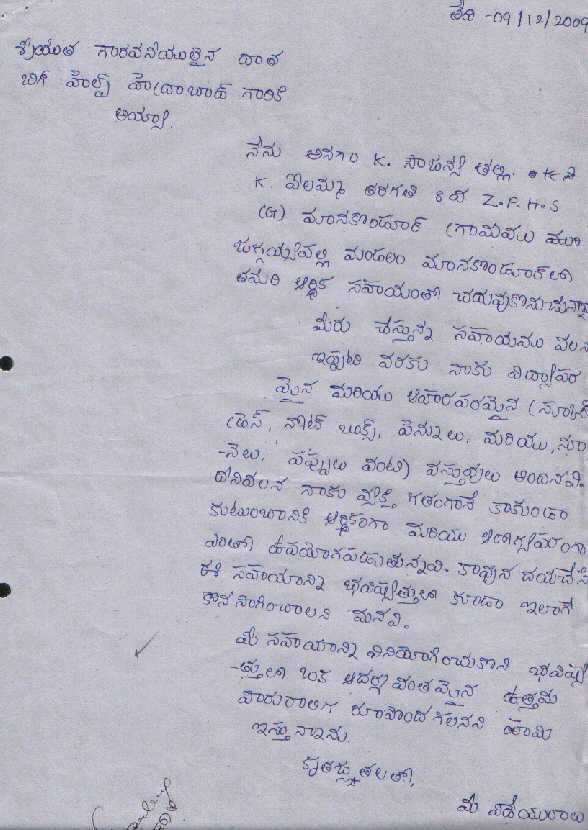 తేది -09/12/2009
శ్రీయుత గౌరవనీయులైన దాత
బిగ్ హెల్ప్ హైద్రాబాద్ గారికి
అయ్యా,
నేను అనగా K. సౌజన్య తల్లి
K. పోలమ్మ తరగతి 8వ Z.P.H.S
(G) మానకొండూర్ (గ్రామము
మండలం మానకొండూర్‌లో
తమరి ఆర్థిక సహాయంతో చదువుకొనుచున్నా
మీరు చేస్తున్న సహాయము వలన
ఇప్పటి వరకు నాకు విద్యాపర
మైన మరియు ఆహారపరమైన (స్కూల్
డ్రెస్, నోట్ బుక్స్, పెన్నులు, మరియు, నూ
-నెలు, పప్పులు వంటి) వస్తువులు అందినవి.
దీనివలన నాకు వ్యక్తి గతంగానే కాకుండా
కుటుంబానికి ఆర్థికంగా మరియు ఆరోగ్యపరంగా
ఎంతో ఉపయోగపడుతున్నవి. కావున దయచేసి
ఈ సహాయాన్ని భవిష్యత్తులో కూడా ఇలాగే
కొనసాగించాలని మనవి.
మీ సహాయాన్ని వినియోగించుకొని భవిష్య
-త్తులో ఒక ఆదర్శవంతమైన ఉత్తమ
పౌరురాలిగా రూపొందగలనని హామి
ఇస్తున్నాను.
కృతజ్ఞతలతో,
మీ విధేయురాలు